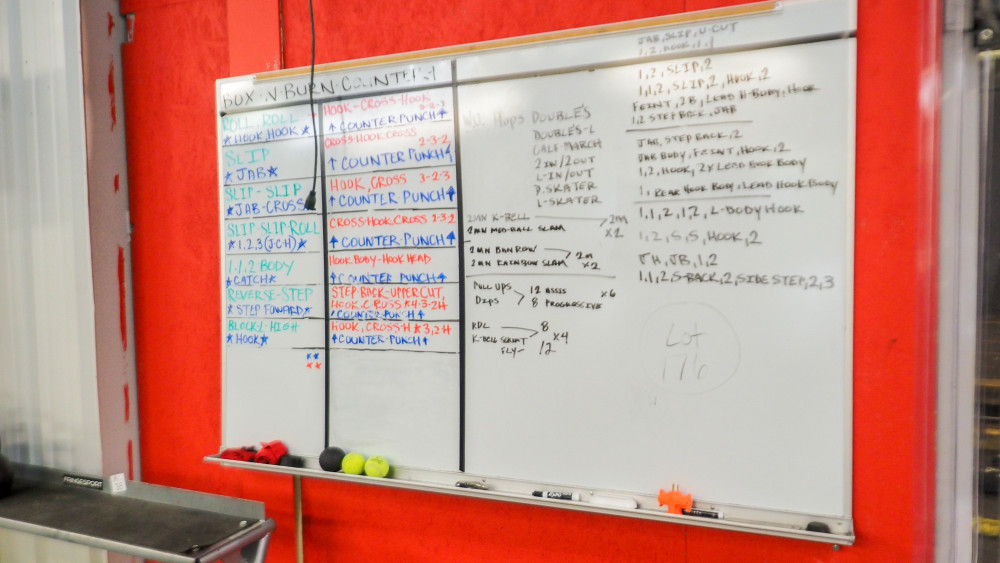 BOX-N-BURN-COUNTER-1
ROLL, ROLL
★HOOK, HOOK★
SLIP
★JAB★
SLIP-SLIP
★JAB-CROSS
SLIP SLIP ROLL
★1,2,3(J-C-H)★
1,1,2 BODY
★CATCH★
REVERSE-STEP
★STEP FOWARD★
BLOCK-L-HIGH
★HOOK★
★★
★★
HOOK-CROSS-HOOK
3-2-3
↑COUNTER PUNCH↑
CROSS-HOOK-CROSS
2-3-2
↑COUNTER PUNCH↑
HOOK, CROSS 3-2-3
↑COUNTER PUNCH↑
CROSS-HOOK-CROSS 2-3-2
↑COUNTER-PUNCH↑
HOOK BODY-HOOK HEAD
↑COUNTER PUNCH↑
STEP-BACK-UPPERCUT,
HOOK, CROSS★4-3-2H
↑COUNTER-PUNCH↑
HOOK, CROSS-H★3,2H
↑COUNTER-PUNCH↑
W.U. Hops DOUBLES
DOUBLES-L
CALF MARCH
2 IN/2 OUT
L-IN/OUT
D.SKATER
L-SKATER
2MN K-BELL
2MN MED-BALL SLAM
2m
x2
2 MN BAN ROW
2 MN RAINBOW SLAM
2m
x2
PULL UPS
DIPS
12 ASSIS
8 PROGRESSIVE
x6
RDL
K-BELL SQUAT
FLY-
8
12
x4
JAB, SLIP, U-CUT
1,2, HOOK, 1,1
1,2, SLIP, 2
1,1,2, SLIP, 2, HOOK, 2
FEINT, 2B, LEAD H-BODY, HOOK
1,2 STEP BACK, JAB
JAB, STEP BACK, 2
JAB BODY, FEINT, HOOK, 2
1,2, HOOK, 2x LEAD HOOK BODY
1, REAR HOOK BODY, LEAD HOOK BODY
1,1,2, 1,2, L-BODY HOOK
1,2, S, S, HOOK, 2
JH, JB, 1,2
1,1,2, S-BACK, 2, SIDE STEP, 2,3
Lot
176
FRINGESPORT
EXPO